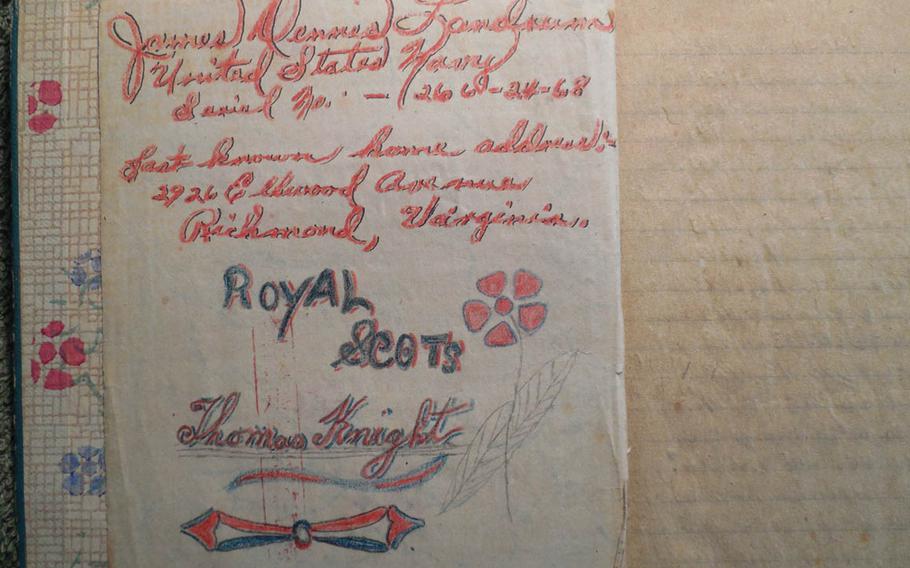 James Dennis Landrum
United States Navy
Serial No. — 266-24-68
Last known home address:-
2926 Ellwood Avenue
Richmond, Virginia.
ROYAL
SCOTS
Thomas Knight